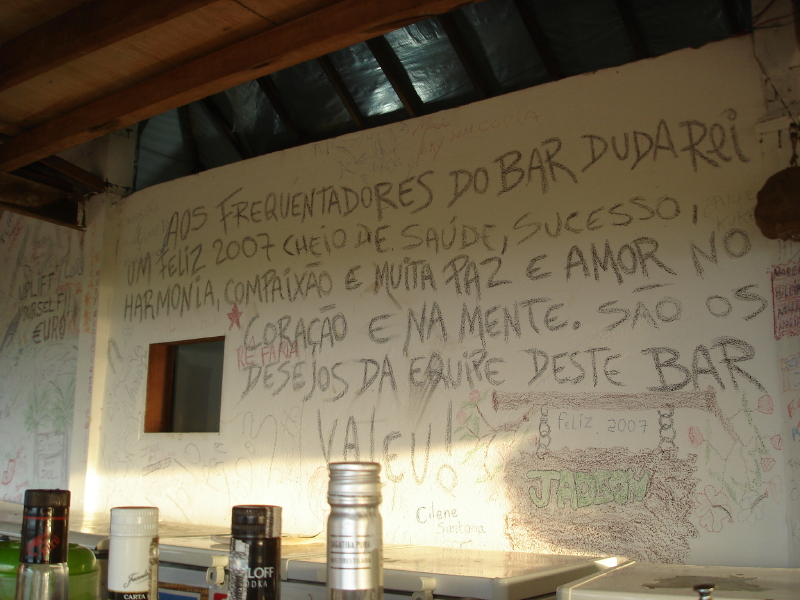 AOS FREQUENTADORES DO BAR DUDA REi
UM FELIZ 2007 CHEIO DE SAÚDE, SUCESSO,
HARMONIA, COMPAIXÃO E MUITA PAZ E AMOR NO
CORAÇÃO E NA MENTE. SÃO OS
DESEJOS DA EQUIPE DESTE BAR
VALEU!
UPLIFT
YOURSELF!!
€URO
RE FARIA
feliz 2007
JADSON
Cilene
Santana
CARTA
LOFF
ODKA